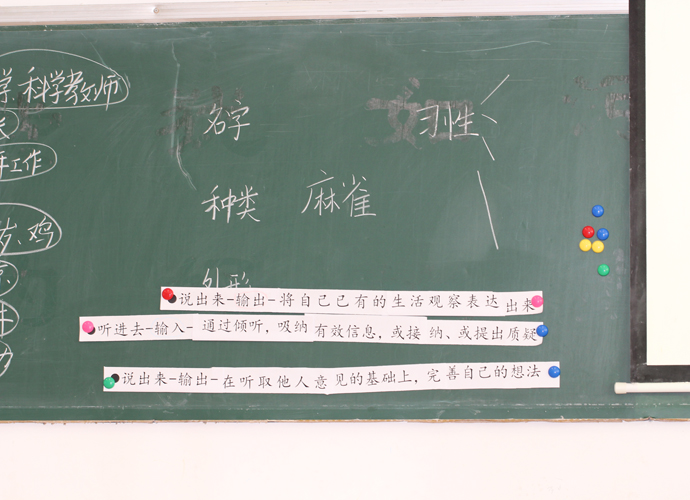 学科学教师
名字
习性
工作
种类
麻雀
鸡
外形
说出来-输出-将自己已有的生活观察表达出来
听进去-输入-通过倾听，吸纳有效信息，或接纳、或提出质疑
说出来-输出-在听取他人意见的基础上，完善自己的想法